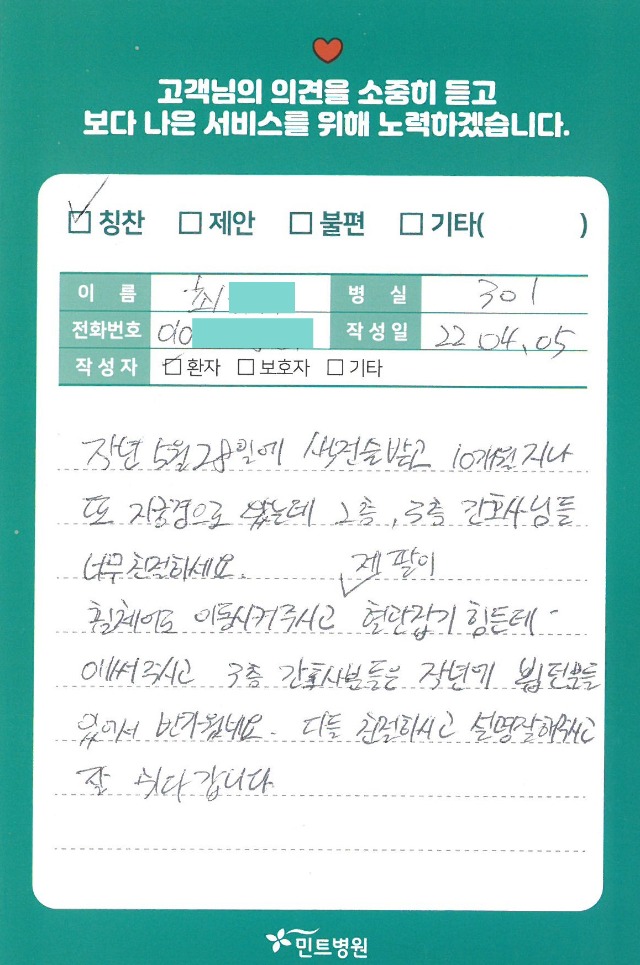 고객님의 의견을 소중히 듣고
보다 나은 서비스를 위해 노력하겠습니다.
칭찬 제안 불편 기타( )
이 름 최 병 실 301
전화번호 010 작성일 22.04.05
작성자 환자 보호자 기타
작년 5월 28일에 색전술받고 10개월 지나
또 자궁경으로 왔는데 2층, 3층 간호사님들
너무 친절하세요. 제 팔이
휠체어도 이동시켜주시고 혈관잡기 힘든데
애써주시고 3층 간호사분들은 작년에 뵙던분들
있어서 반가웠네요. 다들 친절하시고 설명잘해주시고
잘 쉬다 갑니다
민트병원